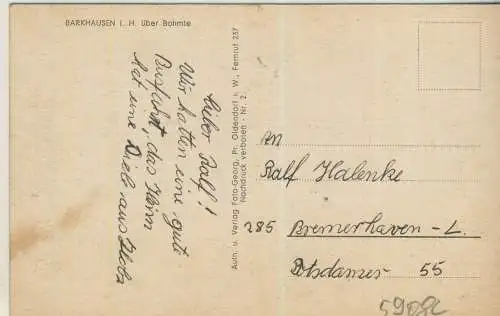 BARKHAUSEN i. H. über Bohmte
Lieber Ralf!
Wir hatten eine gute
Busfahrt, das Heim
hat eine Diele aus Holz
Auth. u. Verlag Foto-Georg, Pr. Oldendorf i. W., Fernruf 237
Nachdruck verboten - Nr. 2
An
Ralf Halenke
285 Bremerhaven-L.
Potsdamer 55
5908c